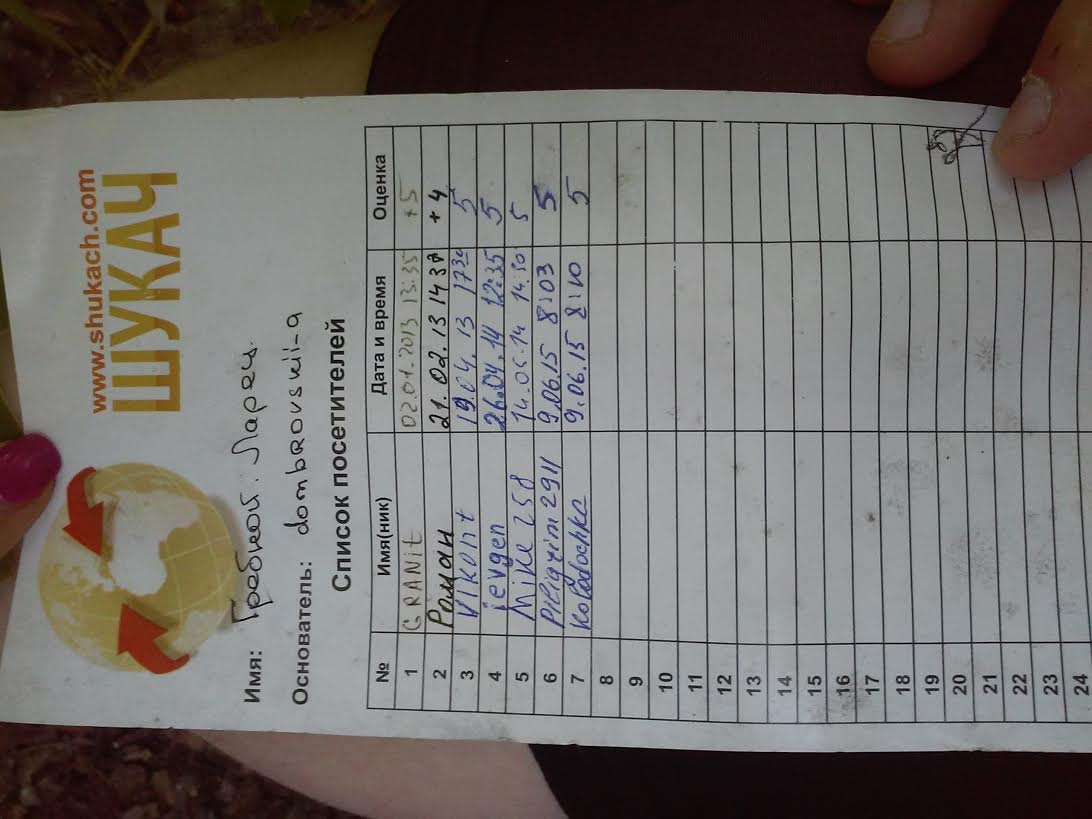 www.shukach.com
ШУКАЧ
Имя: Гребной. Ларец.
Основатель: dombrovskii-a
Список посетителей
№ Имя(ник) Дата и время Оценка
1 GRANit 02.01.2013 13:35 +5
2 Роман 21.02.13 14 37 +4
3 Vikont 19.04.13 17 30 5
4 ievgen 26.04.14 12:35 5
5 Mike 258 14.05.14 14:30 5
6 Pilegrim2911 9.06.15 8:03 5
7 Kolodochka 9.06.15 8:10 5
8
9
10
11
12
13
14
15
16
17
18
19
20
21
22
23
24